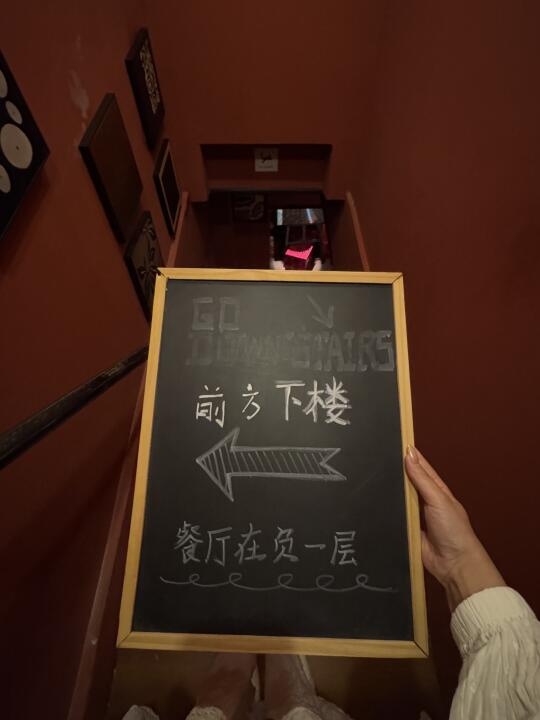 GO
DOWNSTAIRS
前方下楼
餐厅在负一层